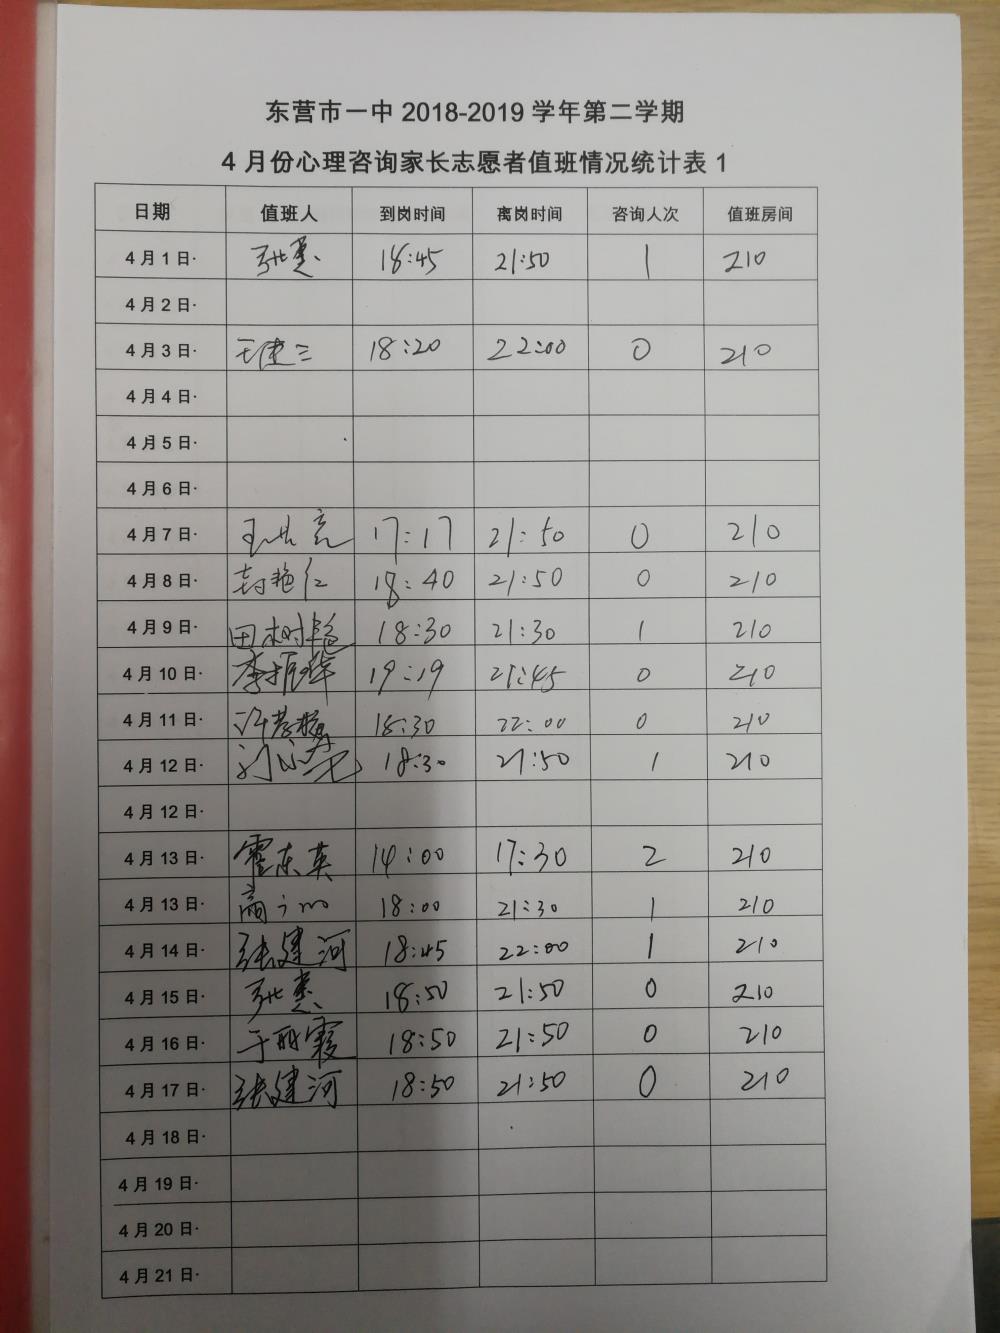 东营市一中 2018-2019 学年第二学期
4 月份心理咨询家长志愿者值班情况统计表 1
日期 值班人 到岗时间 离岗时间 咨询人次 值班房间
4 月 1 日· 张惠 18:45 21:50 1 210
4 月 2 日·
4 月 3 日· 王建三 18:20 22:00 0 210
4 月 4 日·
4 月 5 日·
4 月 6 日·
4 月 7 日· 17:17 21:50 0 210
4 月 8 日· 封艳红 18:40 21:50 0 210
4 月 9 日· 田树艳 18:30 21:30 1 210
4 月 10 日· 李振华 19:19 21:45 0 210
4 月 11 日· 18:30 22:00 0 210
4 月 12 日· 18:30 21:50 1 210
4 月 12 日·
4 月 13 日· 霍东英 14:00 17:30 2 210
4 月 13 日· 18:00 21:30 1 210
4 月 14 日· 张建河 18:45 22:00 1 210
4 月 15 日· 张惠 18:50 21:50 0 210
4 月 16 日· 于丽霞 18:50 21:50 0 210
4 月 17 日· 张建河 18:50 21:50 0 210
4 月 18 日·
4 月 19 日·
4 月 20 日·
4 月 21 日·